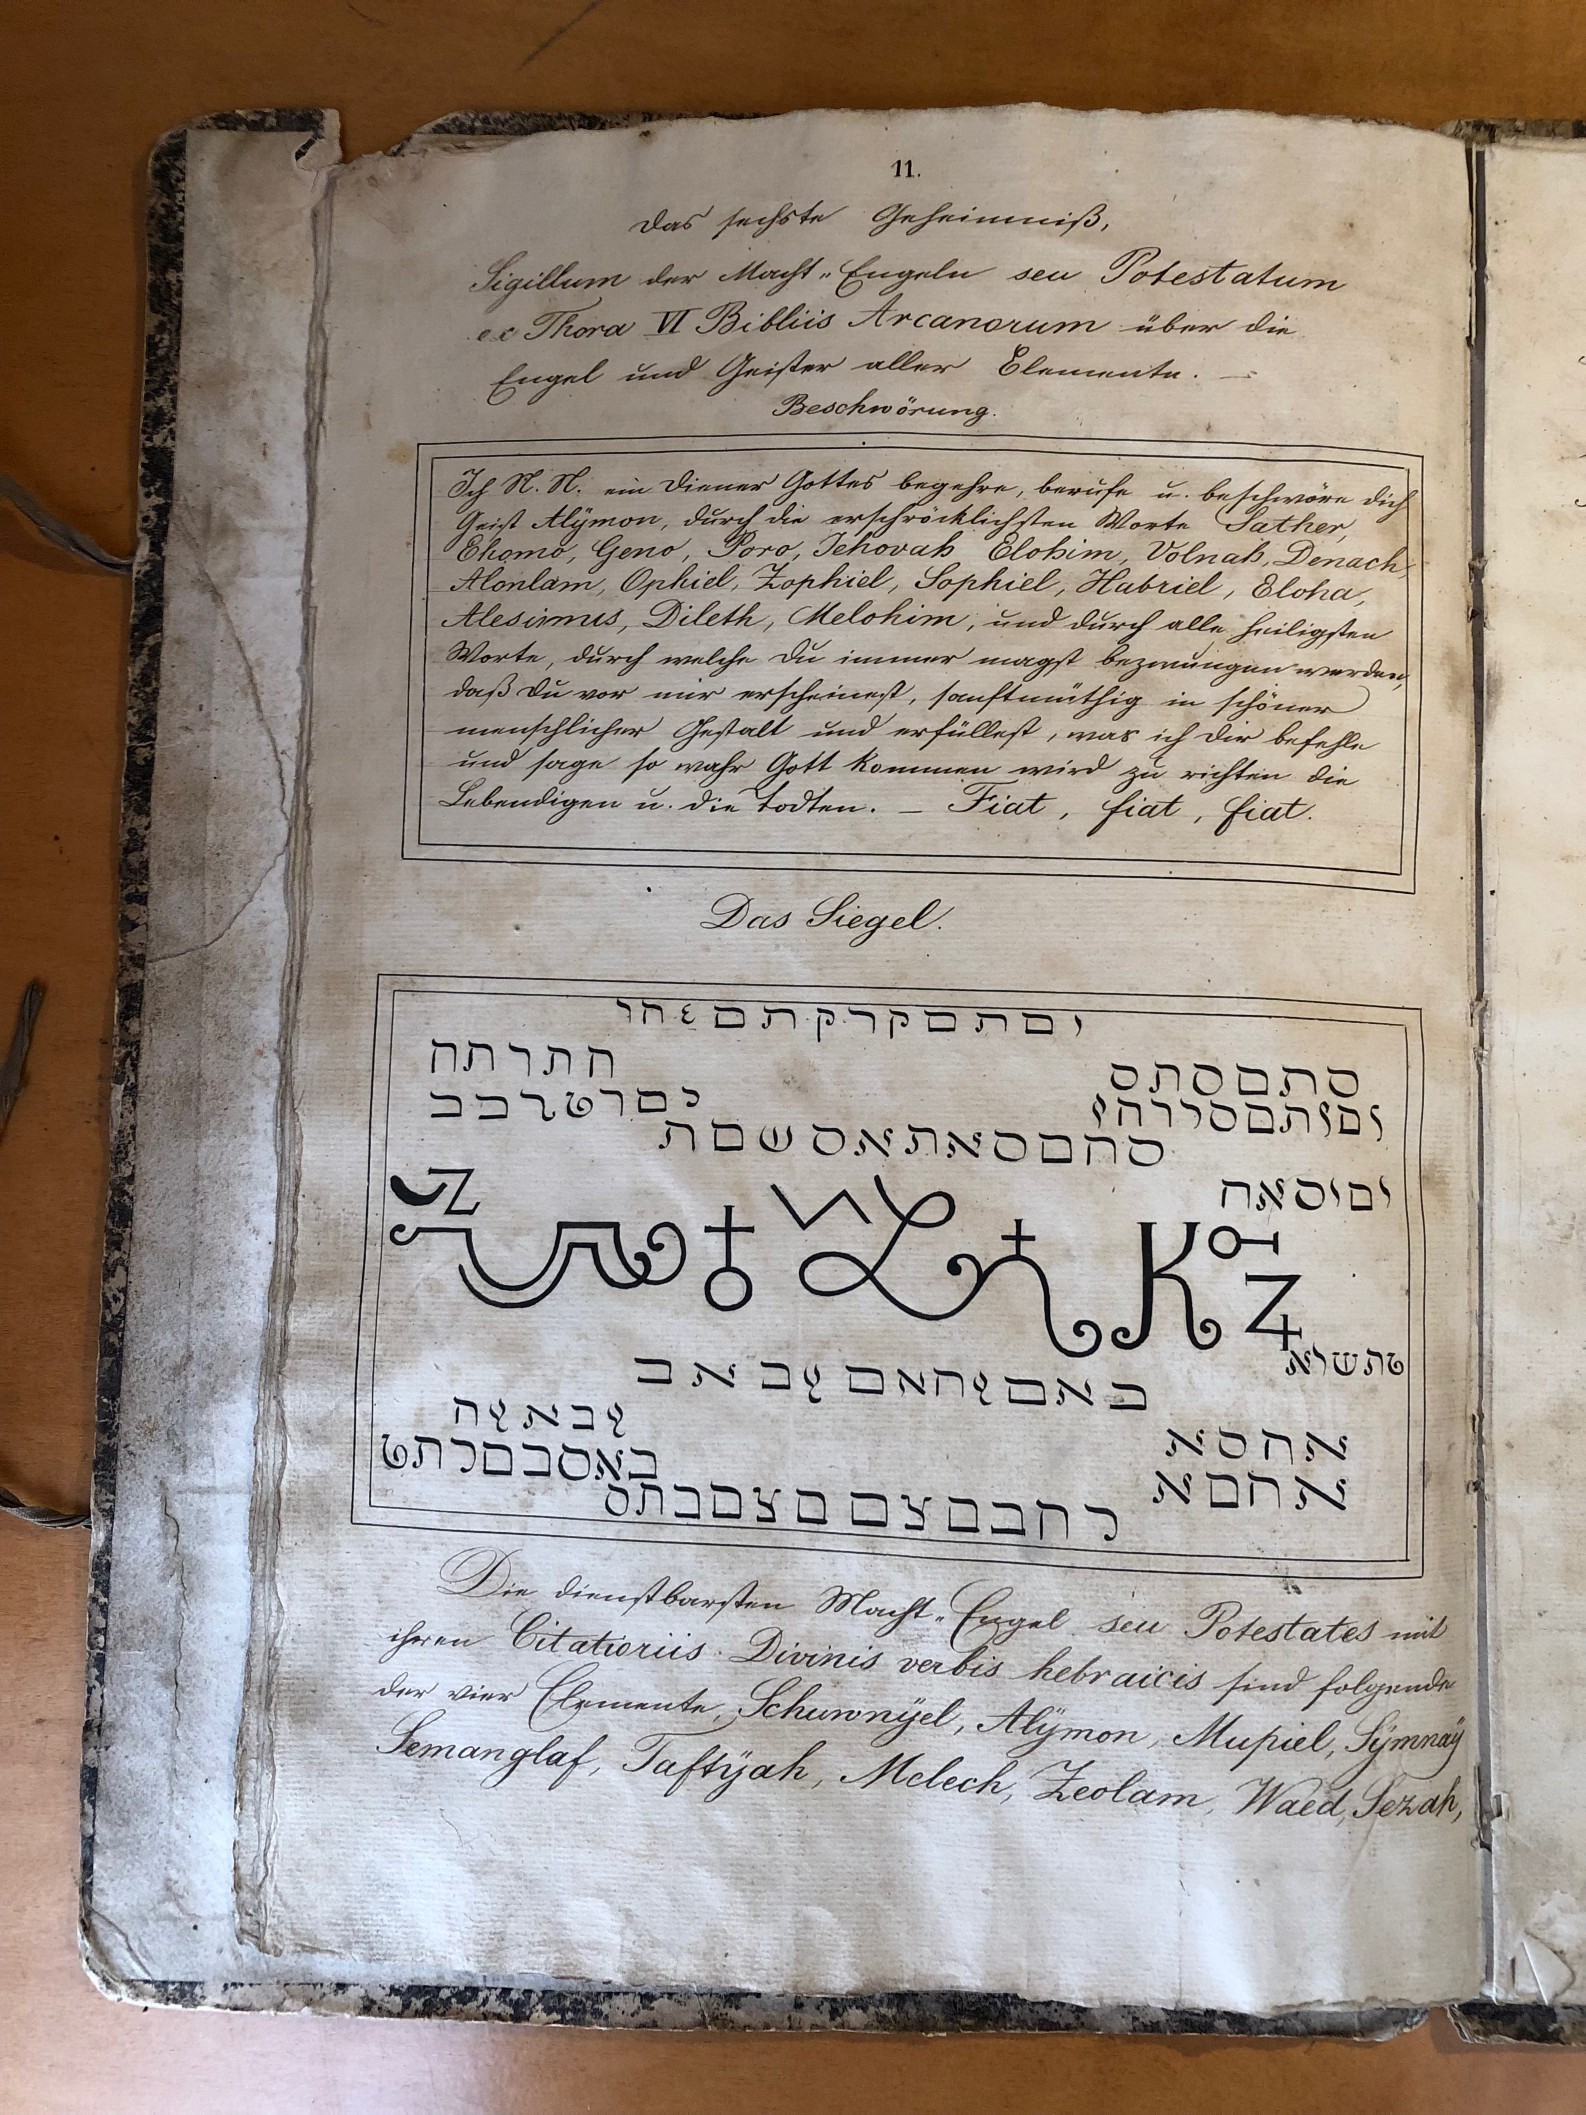 11.
Das sechste Geheimniß,
Sigillum der Macht-Engeln seu Potestatum
ex Thora VI Bibliis Arcanorum über die
Engel und Geister aller Elemente. —
Beschwörung.
Ich N. N. ein Diener Gottes begehre, berufe u. beschwöre dich
Geist Alÿmon, durch die erschröcklichsten Worte Sather,
Ehomo, Geno, Poro, Jehovah Elohim, Volnah, Denach,
Alonlam, Ophiel, Zophiel, Sophiel, Habriel, Eloha,
Alesimus, Dileth, Melohim, und durch alle heiligsten
Worte, durch welche Du immer magst bezwungen werden,
daß Du vor mir erscheinest, sanftmüthig in schöner
menschlicher Gestalt und erfüllest, was ich Dir befehle
und sage so wahr Gott kommen wird zu richten die
Lebendigen u. die Todten. — Fiat, fiat, fiat.
Das Siegel.
חתרתה
סתםסתס
סהםסאתאסשםת
יםיסאה
טתשרא
אהסא
אהםא
Die dienstbarsten Macht-Engel seu Potestates mit
ihren Citatioriis Divinis verbis hebraicis sind folgende
der vier Elemente, Schuwnÿel, Alÿmon, Mupiel, Sÿmnaÿ
Semanglaf, Taftÿah, Melech, Zeolam, Waed, Sezah,